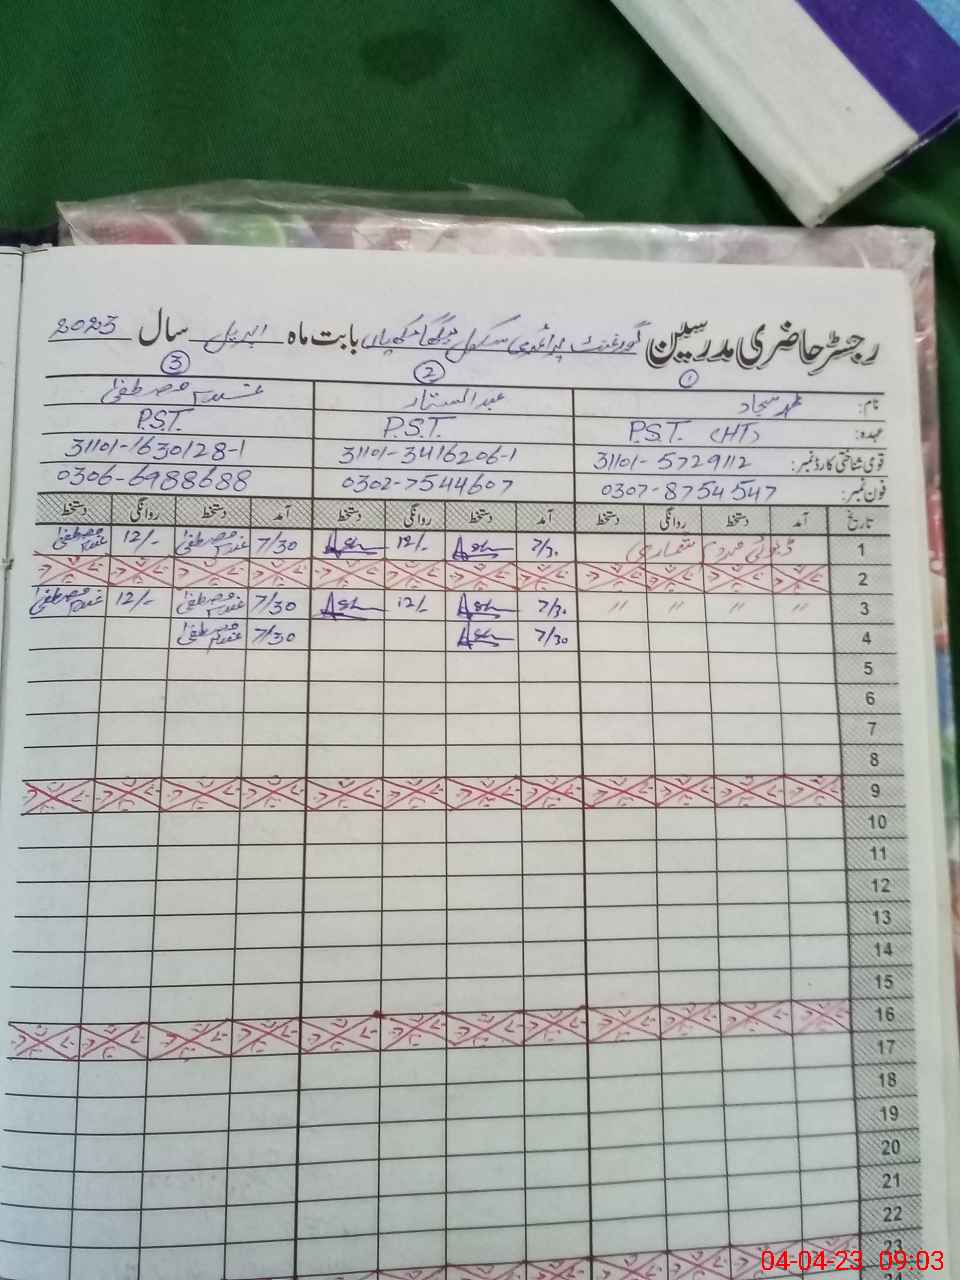 رجسٹر حاضری مدرسین گورنمنٹ پرائمری سکول بابت ماہ اپریل سال 2023
① ② ③
نام: محمد سجاد عبدالستار غلام مصطفیٰ
عہدہ: P.S.T. (HT) P.S.T. P.S.T.
قومی شناختی کارڈ نمبر: 31101-5729112 31101-3416206-1 31101-1630128-1
فون نمبر: 0307-8754547 0302-7544607 0306-6988688
تاریخ آمد دستخط روانگی دستخط آمد دستخط روانگی دستخط آمد دستخط روانگی دستخط
1 ڈیوٹی مردم شماری 7/30 Ash 12/- Ash 7/30 غلام مصطفیٰ 12/- غلام مصطفیٰ
2
3 〃 〃 〃 〃 7/30 Ash 12/- Ash 7/30 غلام مصطفیٰ 12/- غلام مصطفیٰ
4 7/30 Ash 7/30 غلام مصطفیٰ
5
6
7
8
9
10
11
12
13
14
15
16
17
18
19
20
21
22
23
04-04-23 09:03